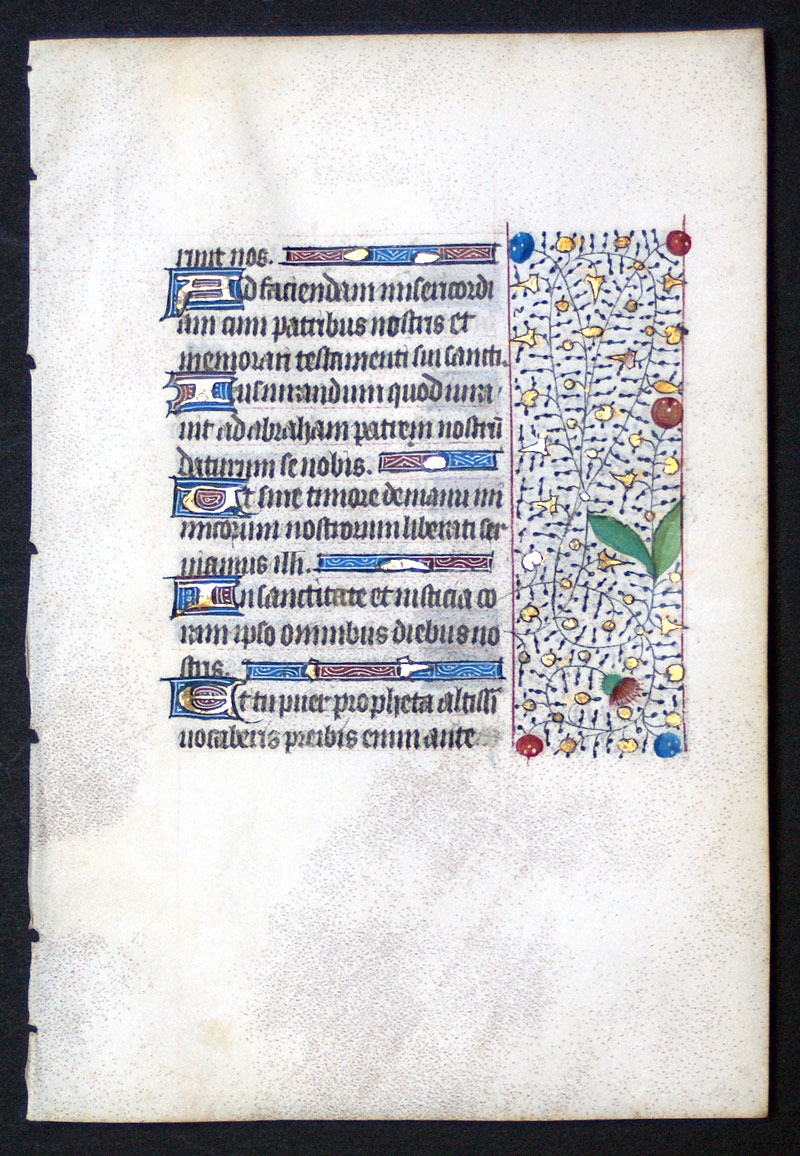 runt nos.
Ad faciendam misericordi
am cum patribus nostris et
memorari testamenti sui sancti.
Iusiurandum quod iura
uit ad abraham patrem nostrū
daturum se nobis.
Et sine timore de manu ini
micorum nostrorum liberati ser
uiamus illi.
In sanctitate et iusticia co
ram ipso omnibus diebus no
stris.
Et tu puer propheta altissī
uocaberis preibis enim ante